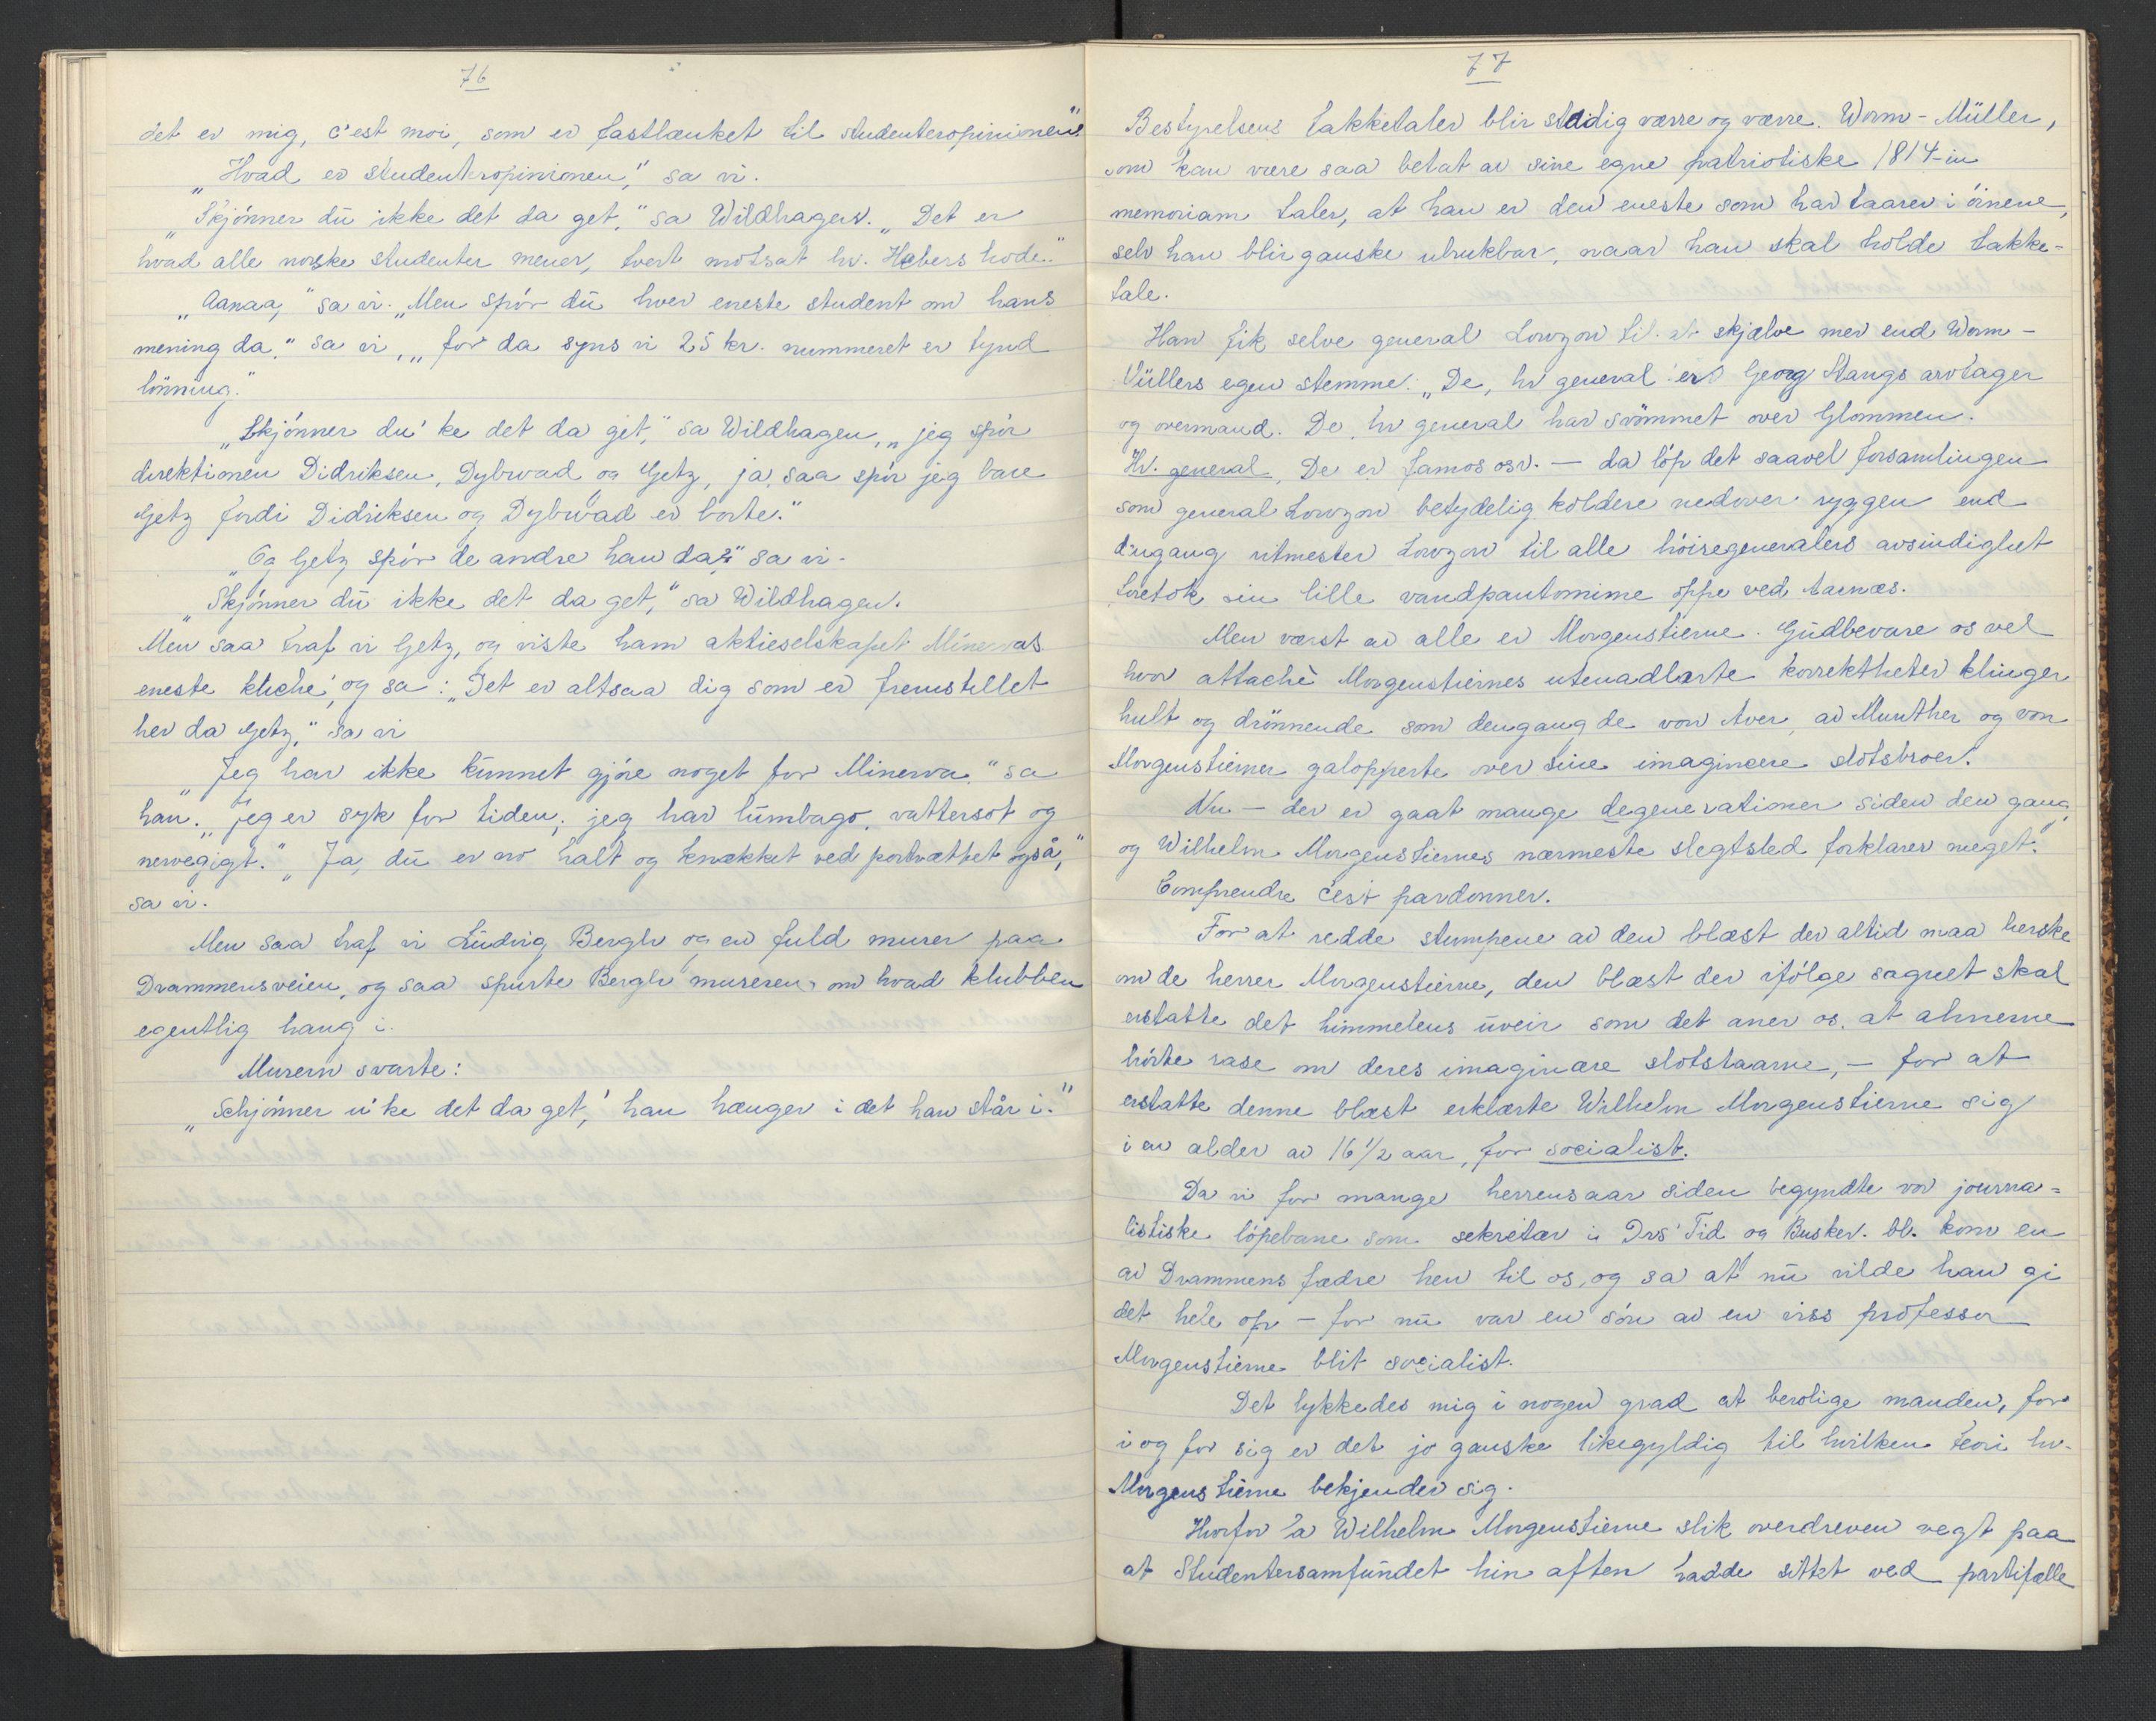 76
det er mig, c'est moi, som er fastlænket til studenteropinionen"
„Hvad er studenteropinionen," sa vi.
„Skjønner du ikke det da get," sa Wildhagen. „Det er
hvad alle norske studenter mener, tvert motsat hr. Hebers hode."
„Aanaa," sa vi. „Men spør du hver eneste student om hans
mening da," sa vi, „for da syns vi 25 kr. nummeret er tynd
lønning."
„Skjønner du' ke det da get," sa Wildhagen, „jeg spør
direktionen Didriksen, Dybwad og Getz, ja, saa spør jeg bare
Getz fordi Didriksen og Dybwad er borte."
„Og Getz spør de andre han da?" sa vi.
„Skjønner du ikke det da get," sa Wildhagen.
Men saa traf vi Getz, og viste ham aktieselskapet Minervas
eneste kliché, og sa: „Det er altsaa dig som er fremstillet
her da Getz," sa vi
„Jeg har ikke kunnet gjøre noget for Minerva" sa
han. „jeg er syk for tiden, jeg har lumbago, vattersot og
nervegigt." „Ja, du er no halt og knækket ved portrættet også,"
sa vi.
Men saa traf vi Ludvig Bergh og en fuld murer paa
Drammensveien, og saa spurte Bergh mureren om hvad klubben
egentlig hang i.
Murern svarte:
„Schjønner u'ke det da get,' han hænger i det han står i."
77
Bestyrelsens takketaler blir stadig værre og værre. Worm-Müller,
som kan være saa betat av sine egne patriotiske 1814-in
memoriam taler, at han er den eneste som har taarer i øinene,
selv han blir ganske ubrukbar, naar han skal holde takke-
tale.
Han fik selve general Lowzow til at skjælve mer end Worm-
Müllers egen stemme: „De, hr general er Georg Stangs arvtager
og overmand. De, hr general har svømmet over Glommen.
Hr. general, De er famos osv. — da løp det saavel forsamlingen
som general Lowzow betydelig koldere nedover ryggen end
dengang ritmester Lowzow til alle høiregeneralers avsindighet
foretok sin lille vandpantomime oppe ved Aarnæs.
Men værst av alle er Morgenstierne. Gudbevare os vel
hvor attaché Morgenstiernes utenadlærte korrektheter klinger
hult og drønnende som dengang de von Aver, av Munther og von
Morgenstierner galopperte over sine imaginære slotsbroer.
Nu — der er gaat mange degenerationer siden den gang,
og Wilhelm Morgenstiernes nærmeste slegtsled forklarer meget."
Comprendre c'est pardonner.
For at redde stumpene av den blæst der altid maa herske
om de herrer Morgenstierne, den blæst der ifølge sagnet skal
erstatte det himmelens uveir som det aner os, at ahnerne
hørte rase om deres imaginære slotstaarne, — for at
erstatte denne blæst erklærte Wilhelm Morgenstierne sig
i en alder av 16 1/2 aar, for socialist.
Da vi for mange herrensaar siden begyndte vor journa=
listiske løpebane som sekretær i Drs' Tid og Busker. bl. kom en
av Drammens fædre hen til os, og sa at nu vilde han gi
det hele op — for nu var en søn av en viss professor
Morgenstierne blit socialist.
Det lykkedes mig i nogen grad at berolige manden, for
i og for sig er det jo ganske likegyldig til hvilken teori hr.
Morgenstierne bekjender sig.
Hvorfor la Wilhelm Morgenstierne slik overdreven vegt paa
at Studentersamfundet hin aften hadde sittet ved partifælle